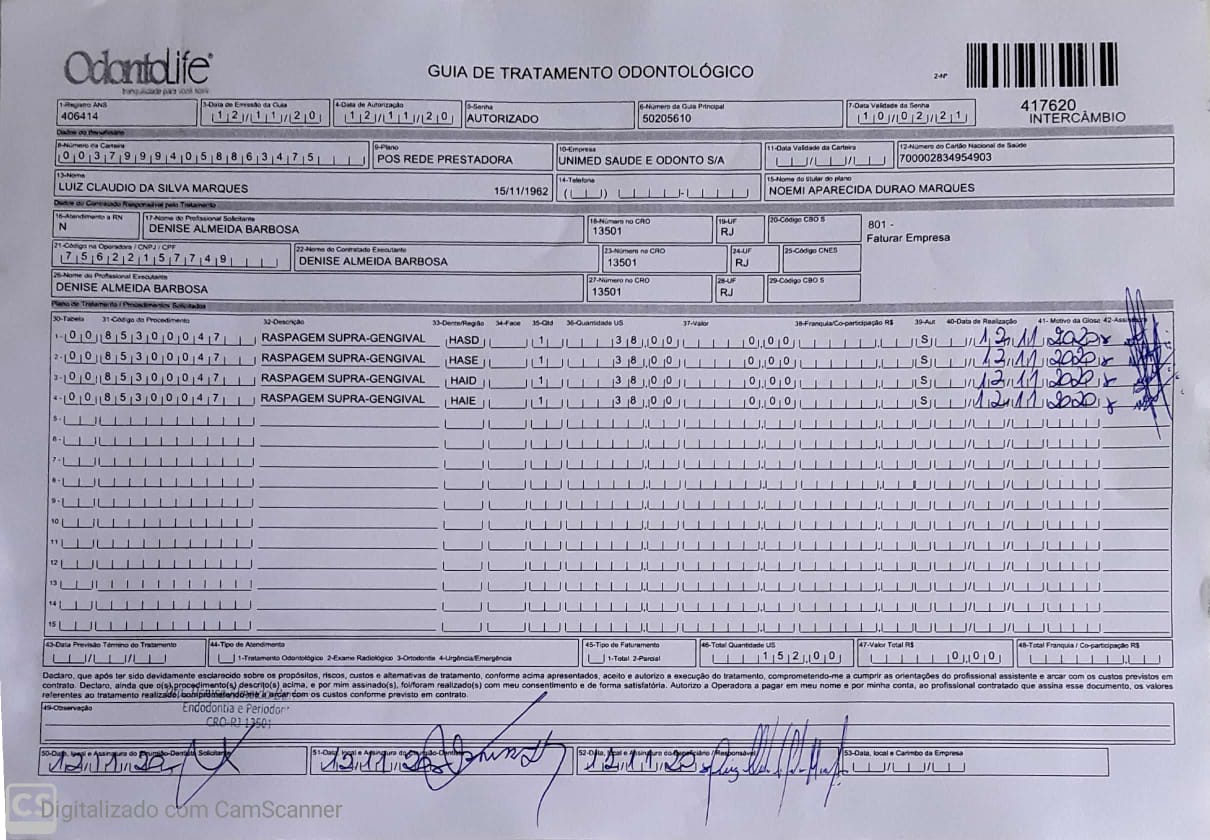 OdontoLife
tranquilidade para você sorrir
GUIA DE TRATAMENTO ODONTOLÓGICO
2-Nº
417620
INTERCÂMBIO
1-Registro ANS 3-Data de Emissão da Guia 4-Data de Autorização 5-Senha 6-Número da Guia Principal 7-Data Validade da Senha
406414 12/11/20 12/11/20 AUTORIZADO 50205610 10/02/21
Dados do Beneficiário
8-Número da Carteira 9-Plano 10-Empresa 11-Data Validade da Carteira 12-Número do Cartão Nacional de Saúde
00379994058863475 POS REDE PRESTADORA UNIMED SAUDE E ODONTO S/A 700002834954903
13-Nome 14-Telefone 15-Nome do titular do plano
LUIZ CLAUDIO DA SILVA MARQUES 15/11/1962 NOEMI APARECIDA DURAO MARQUES
Dados do Contratado Responsável pelo Tratamento
16-Atendimento a RN 17-Nome do Profissional Solicitante 18-Número no CRO 19-UF 20-Código CBO S
N DENISE ALMEIDA BARBOSA 13501 RJ
801 -
Faturar Empresa
21-Código na Operadora / CNPJ / CPF 22-Nome do Contratado Executante 23-Número no CRO 24-UF 25-Código CNES
75622157749 DENISE ALMEIDA BARBOSA 13501 RJ
26-Nome do Profissional Executante 27-Número no CRO 28-UF 29-Código CBO S
DENISE ALMEIDA BARBOSA 13501 RJ
Plano de Tratamento / Procedimentos Solicitados
30-Tabela 31-Código do Procedimento 32-Descrição 33-Dente/Região 34-Face 35-Qtd 36-Quantidade US 37-Valor 38-Franquia/Co-participação R$ 39-Aut 40-Data de Realização 41- Motivo da Glosa 42-Assinatura
1- 00 85300047 RASPAGEM SUPRA-GENGIVAL HASD 1 38,00 0,00 S 12 11 2020
2- 00 85300047 RASPAGEM SUPRA-GENGIVAL HASE 1 38,00 0,00 S 12 11 2020
3- 00 85300047 RASPAGEM SUPRA-GENGIVAL HAID 1 38,00 0,00 S 12 11 2020
4- 00 85300047 RASPAGEM SUPRA-GENGIVAL HAIE 1 38,00 0,00 S 12 11 2020
5-
6-
7-
8-
9-
10
11
12
13
14
15
43-Data Previsão Término do Tratamento 44-Tipo de Atendimento 45-Tipo de Faturamento 46-Total Quantidade US 47-Valor Total R$ 48-Total Franquia / Co-participação R$
1-Tratamento Odontológico 2-Exame Radiológico 3-Ortodontia 4-Urgência/Emergência 1-Total 2-Parcial 152,00 0,00
Declaro, que após ter sido devidamente esclarecido sobre os propósitos, riscos, custos e alternativas de tratamento, conforme acima apresentados, aceito e autorizo a execução do tratamento, comprometendo-me a cumprir as orientações do profissional assistente e arcar com os custos previstos em
contrato. Declaro, ainda que o(s) procedimento(s) descrito(s) acima, e por mim assinado(s), foi/foram realizado(s) com meu consentimento e de forma satisfatória. Autorizo a Operadora a pagar em meu nome e por minha conta, ao profissional contratado que assina esse documento, os valores
referentes ao tratamento realizado, comprometendo-me a arcar com os custos conforme previsto em contrato.
49-Observação
Endodontia e Periodon
CRO-RJ 13501
50-Data, local e Assinatura do Cirurgião-Dentista Solicitante 51-Data, local e Assinatura do Cirurgião-Dentista 52-Data, local e Assinatura do Beneficiário / Responsável 53-Data, local e Carimbo da Empresa
12 11 20 12 11 20 12 11 20
CS Digitalizado com CamScanner